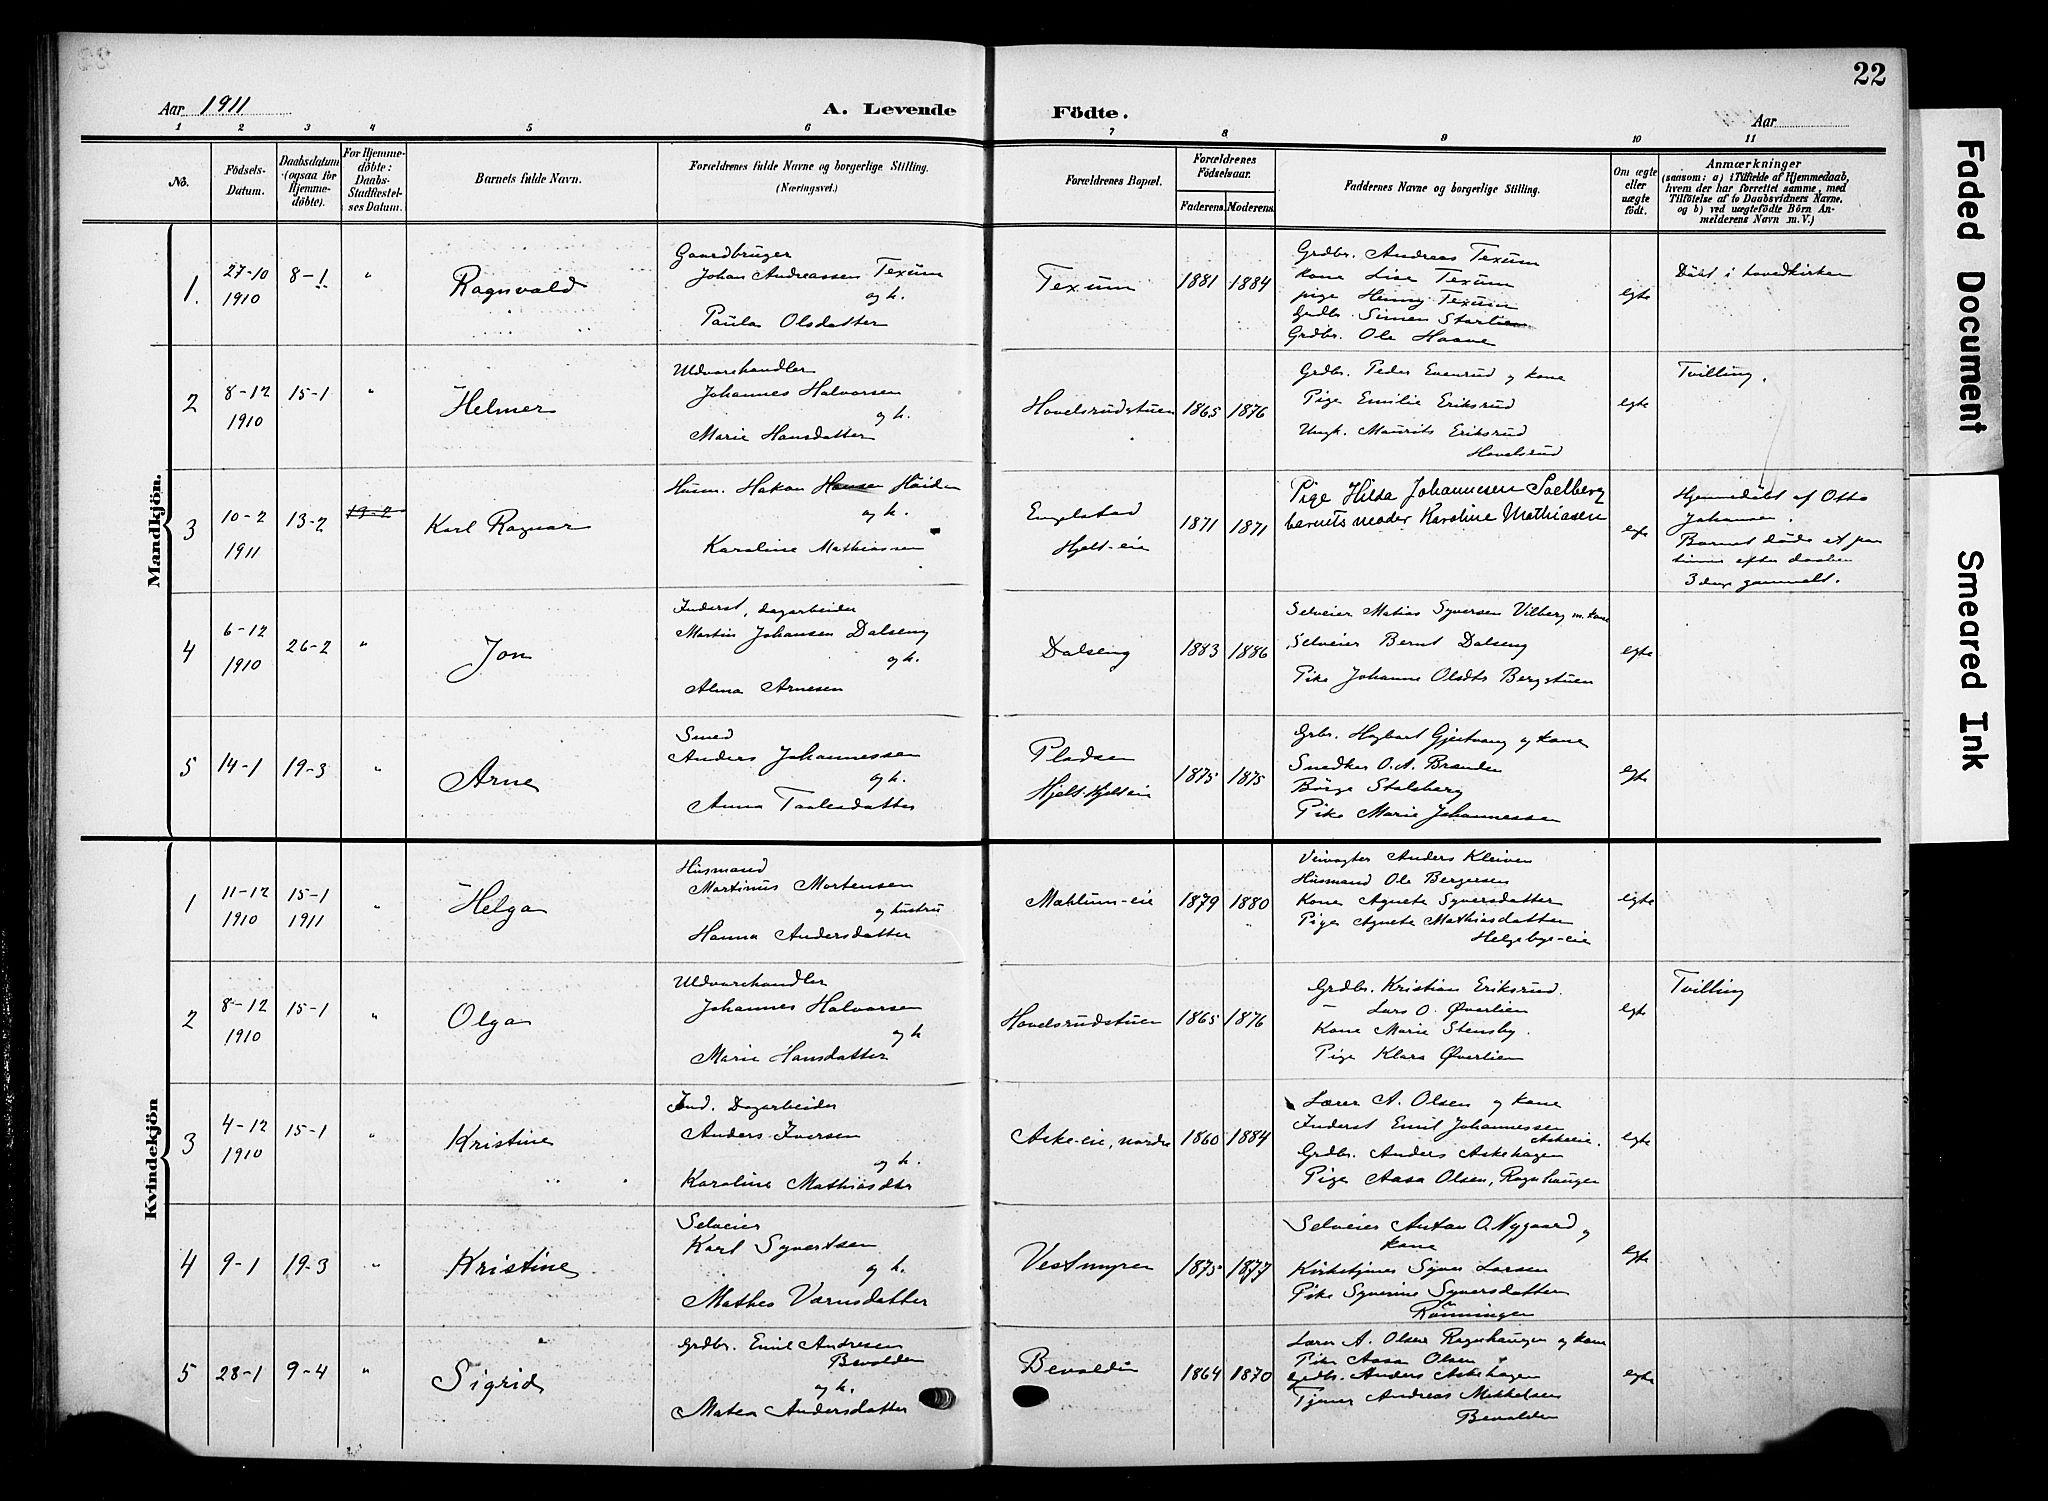 22
Aar 1911
A. Levende Födte.
Aar
1 2 3 4 5 6 7 8 9 10 11
No.
Födsels-Datum.
Daabsdatum (ogsaa for Hjemme-döbte).
For Hjemme-döbte: Daabs-Stadfæstel-ses Datum.
Barnets fulde Navn.
Forældrenes fulde Navne og borgerlige Stilling.
(Næringsvei.)
Forældrenes Bopæl.
Forældrenes Födselsaar.
Faderens. Moderens.
Faddernes Navne og borgerlige Stilling.
Om ægte eller uægte födt.
Anmærkninger
(saasom: a) i Tilfælde af Hjemmedaab,
hvem der har forrettet samme, med
Tilföielse af to Daabsvidners Navne.
og b) ved uægtefödte Börn An-
melderens Navn m. V.)
Mandkjön.
1. 27-10 1910 8-1 " Ragnvald
Gaardbruger
Johan Andreassen Texum
og h.
Paula Olsdatter
Texum 1881 1884
Grdbr. Andreas Texum
kone Lise Texum
pige Henny Texum
Grdb. Simen Starlien
Grdbr. Ole Haave
egte
Döbt i hovedkirken
2 8-12 1910 15-1 " Helmer
Uldvarehandler
Johannes Halvorsen
og h.
Marie Hansdatter
Hovelsrudstuen 1865 1876
Grdbr. Peder Evenrud og kone
Pige Emilie Eriksrud
Ungk. Maurits Eriksrud
Hovelsrud
egte
Tvilling.
3 10-2 1911 13-2 13-2 Karl Ragnar
Husm. Hakon Hansen Haiden
og h.
Karoline Mathiassen
Engelstad
Hjelt-eie
1871 1871
Pige Hilda Johannesen Saelberg
barnets moder Karoline Mathiasen
egte
Hjemmedöbt af Otto
Johansen.
Barnet döde et par
timer efter daaben
3 dage gammelt.
4 6-12 1910 26-2 " Jon
Inderst, dagarbeider
Martin Johansen Dalseng
og h.
Alma Arnesen
Dalseng 1883 1886
Selveier Matias Syversen Vilberg m. kone
Selveier Bernt Dalseng
Pike Johanne Olsdtr Bergstuen
egte
5 14-1 19-3 " Arne
Smed
Anders Johannessen
og h.
Anna Taalesdatter
Pladsen
Hjelt. Hjelteie
1875 1875
Grbr. Hagbart Gjestvang og kone
Snedker O. A. Brenden
Börge Stalsberg
Pike Marie Johannessen
egte
Kvindekjön
1 11-12 1910 15-1 1911 " Helga
Husmand
Martinus Mortensen
og hustru
Hanna Andersdatter
Mæhlum-eie 1879 1880
Veivogter Anders Kleiven
Husmand Ole Bergersen
Kone Agnete Syversdatter
Pige Agnete Mathiasdatter
Helgebye-eie
egte
2 8-12 1910 15-1 " Olga
Uldvarehandler
Johannes Halvorsen
og h
Marie Hansdatter
Hovelsrudstuen 1865 1876
Grdbr. Kristian Eriksrud.
Lars O. Øverlien
Kone Marie Stensby.
Pige Klara Øverlien
egte
Tvilling
3 4-12 1910 15-1 " Kristine
Ind. Dagarbeider
Anders Iversen
og h.
Karoline Mathiasdtr
Aske-eie, nordre 1860 1884
Lærer A. Olsen og kone
Inderst Emil Johannessen
Askeeie.
Grdbr. Anders Askehagen
Pige Aasa Olsen, Ragnhaugen
egte
4 9-1 19-3 " Kristine
Selveier
Karl Syvertsen
og h.
Mathea Varnsdatter
Vestmyren 1875 1877
Selveier Anton O. Nygaard og
kone
Kirketjener Syver Larsen
Pike Syverine Syversdatter
Rønningen
egte
5 28-1 9-4 " Sigrid
Grdbr. Emil Andresen
Bevolden
og h.
Matea Andersdatter
Bevolden 1864 1870
Lærer A. Olsen Ragnhaugen og kone
Pike Aasa Olsen
Grdb. Anders Askehagen
Tjener Andreas Mikkelsen
Bevolden
egte
Faded Document
Smeared Ink